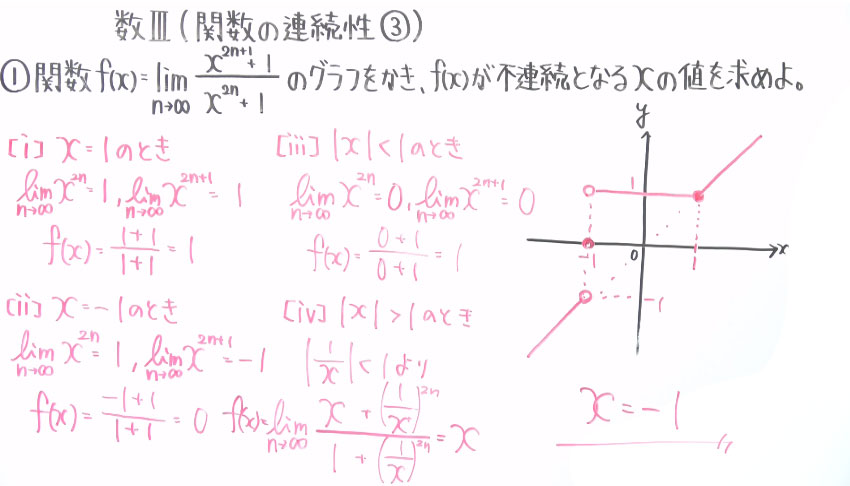 数Ⅲ(関数の連続性③)
①関数f(x)=lim_{n→∞} (x^{2n+1}+1)/(x^{2n}+1) のグラフをかき、f(x)が不連続となるxの値を求めよ。
[i] x=1のとき
lim_{n→∞} x^{2n}=1, lim_{n→∞} x^{2n+1}=1
f(x)=(1+1)/(1+1)=1
[ii] x=-1のとき
lim_{n→∞} x^{2n}=1, lim_{n→∞} x^{2n+1}=-1
f(x)=(-1+1)/(1+1)=0
[iii] |x|<1のとき
lim_{n→∞} x^{2n}=0, lim_{n→∞} x^{2n+1}=0
f(x)=(0+1)/(0+1)=1
[iv] |x|>1のとき
|1/x|<1より
f(x)=lim_{n→∞} (x+(1/x)^{2n})/(1+(1/x)^{2n})=x
y
1
-1
0
1
x
-1
x=-1